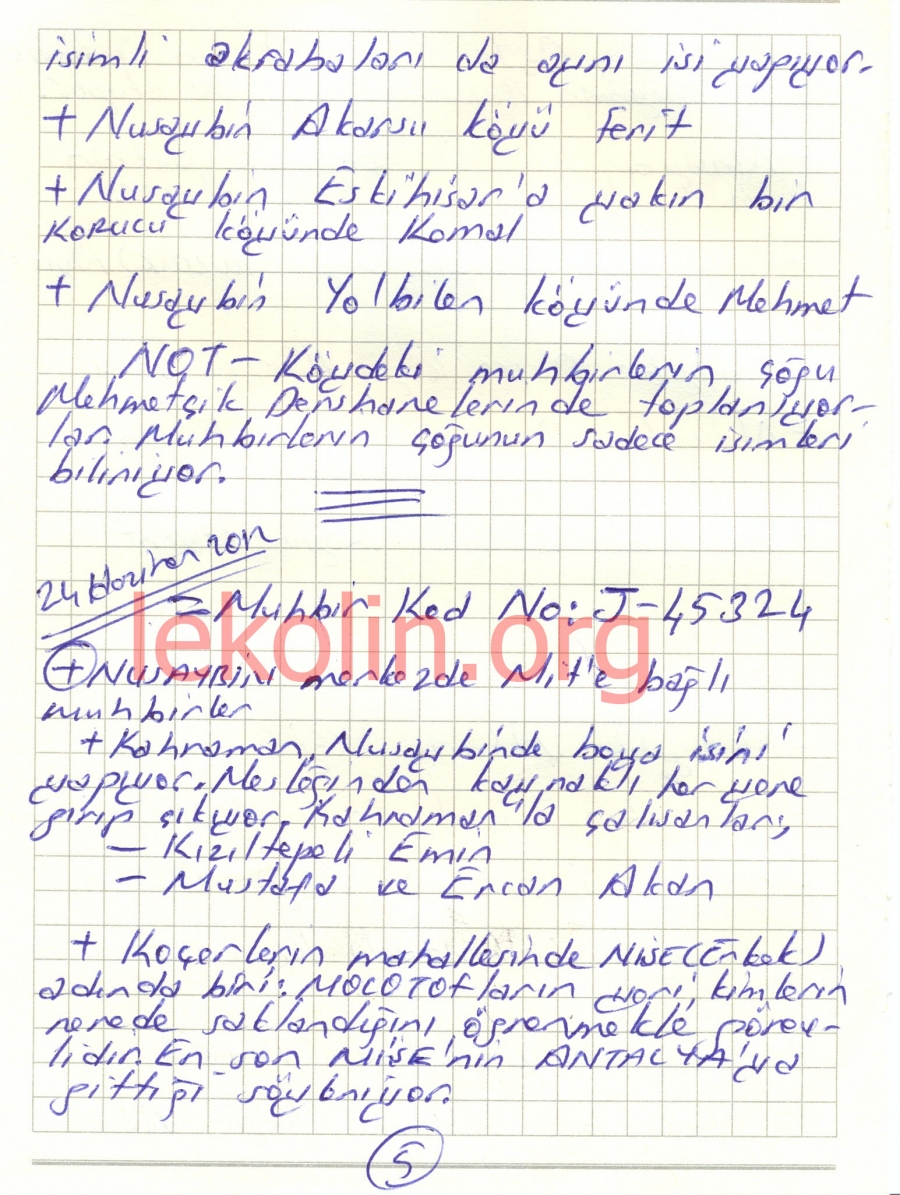 isimli akrabaları da aynı işi yapıyor.
+ Nusaybin Akarsu köyü Ferit
+ Nusaybin Eskihisar'a yakın bir
KORUCU köyünde Kemal
+ Nusaybin Yolbilen köyünde Mehmet
NOT- Köydeki muhbirlerin çoğu
Mehmetçik Dershanelerinde toplanıyor-
lar. Muhbirlerin çoğunun sadece isimleri
biliniyor.
24 Haziran 2012
= Muhbir Kod No: J-45324
lekolin.org
+ NUSAYBİN merkezde Mit'e bağlı
muhbirler
+ Kahraman, Nusaybinde boya işini
yapıyor. Mesleğinden kaynaklı her yere
girip çıkıyor. Kahraman'la çalışanlar;
- Kızıltepeli Emin
- Mustafa ve Ercan Akan
+ Koçerlerin mahallesinde NİŞE (Erkek)
adında biri: MOLOTOFların yeri, kimlerin
nerede saklandığını öğrenmekle görev-
lidir. En son NİŞE'nin ANTALYA'ya
gittiği söyleniyor.
5